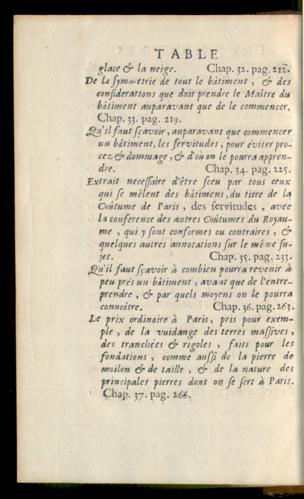 TABLE
glace & la neige. Chap. 32. pag. 212.
De la symmetrie de tout le bâtiment, & des
considerations que doit prendre le Maître du
bâtiment auparavant que de le commencer.
Chap. 33. pag. 219.
Qu'il faut sçavoir, auparavant que commencer
un bâtiment, les servitudes, pour éviter pro-
cez & dommage, & d'où on le pourra appren-
dre. Chap. 34. pag. 225.
Extrait necessaire d'être sceu par tous ceux
qui se mêlent des bâtimens, du titre de la
Coûtume de Paris, des servitudes, avec
la conference des autres Coûtumes du Royau-
me, qui y sont conformes ou contraires, &
quelques autres annotations sur le même su-
jet. Chap. 35. pag. 233.
Qu'il faut sçavoir à combien pourra revenir à
peu prés un bâtiment, avant que de l'entre-
prendre, & par quels moyens on le pourra
connoître. Chap. 36. pag. 263.
Le prix ordinaire à Paris, pris pour exem-
ple, de la vuidange des terres massives,
des tranchées & rigoles, faits pour les
fondations, comme aussi de la pierre de
moilon & de taille, & de la nature des
principales pierres dont on se sert à Paris.
Chap. 37. pag. 266.